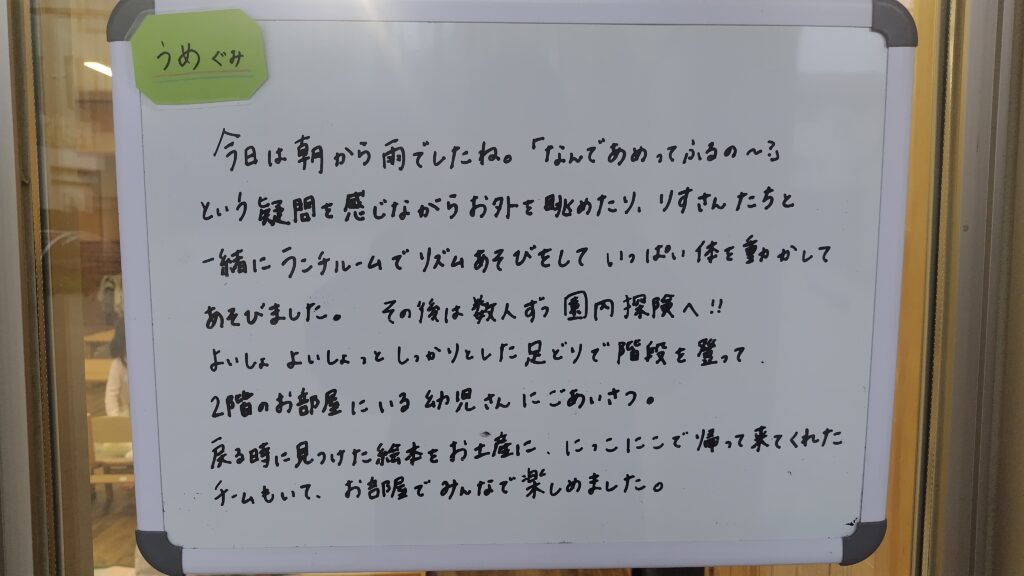 うめぐみ
今日は朝から雨でしたね。「なんであめってふるの～?」
という疑問を感じながらお外を眺めたり、りすさんたちと
一緒にランチルームでリズムあそびをしていっぱい体を動かして
あそびました。 その後は数人ずつ園内探険へ!!
よいしょ よいしょっとしっかりとした足どりで階段を登って、
2階のお部屋にいる幼児さんにごあいさつ。
戻る時に見つけた絵本をお土産に、にっこにこで帰って来てくれた
チームもいて、お部屋でみんなで楽しめました。